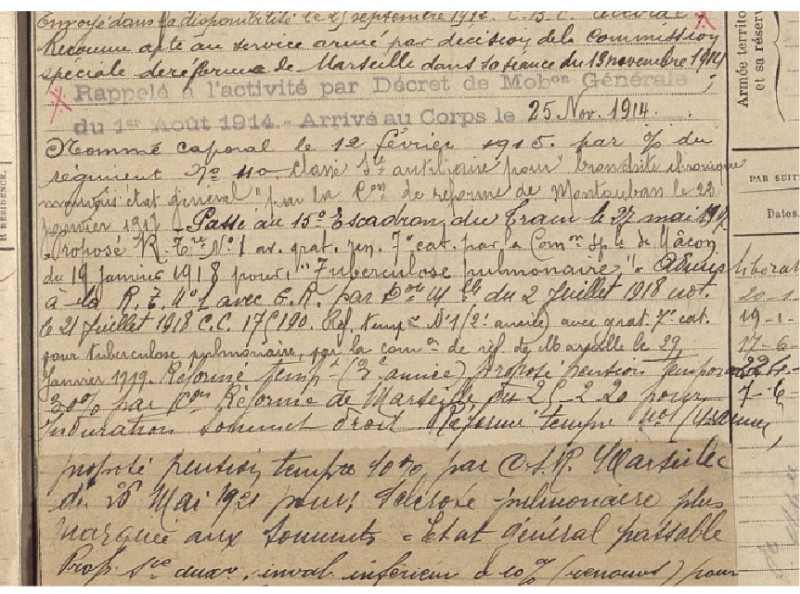 Envoyé dans la disponibilité le 25 septembre 1912. C. B. C.
Reconnu apte au service armé par décision de la Commission
spéciale de réforme de Marseille dans sa séance du 13 novembre 1914
Rappelé à l'activité par Décret de Mobon Générale
du 1er Août 1914.- Arrivé au Corps le 25 Nov. 1914.
Nommé caporal le 12 février 1915. par % du
régiment N° 110. Classé Sce auxiliaire pour bronchite chronique
mauvais état général" par la Con de réforme de Montauban le 22
janvier 1917 - Passé au 15e Escadron du Train le 27 mai 1917.
Proposé R. Tre N°1 av. grat. ren. 7e cat. par la Comon Sple de Mâcon
du 19 janvier 1918 pour: "Tuberculose pulmonaire". - Admis
à la R. T. N°1 avec G.R. par Don Mlle du 2 Juillet 1918 not.
le 21 Juillet 1918 C.C. 175190. Réf. tempre N°1 (2e année) avec grat. 7e cat.
pour tuberculose pulmonaire, par la comon de réf. de Marseille le 29
Janvier 1919. Réformé tempre (3e année) proposé pension temporaire
30% par Con Réforme de Marseille du 25-2-20 pour
Induration sommet droit Réforme tempre No1
proposé pension tempre 10% par C.S.R. Marseille
du 26 Mai 1921 pour: Sclérose pulmonaire plus
marquée aux sommets - Etat général passable
Prop. Sce auxre, inval. inférieur à 10% pour
Armée territo
et sa réserve
R RÉSIDENCE.
PAR SUIT
Dates.
libérat
20-1-
19-1-
17-6-
7-6-